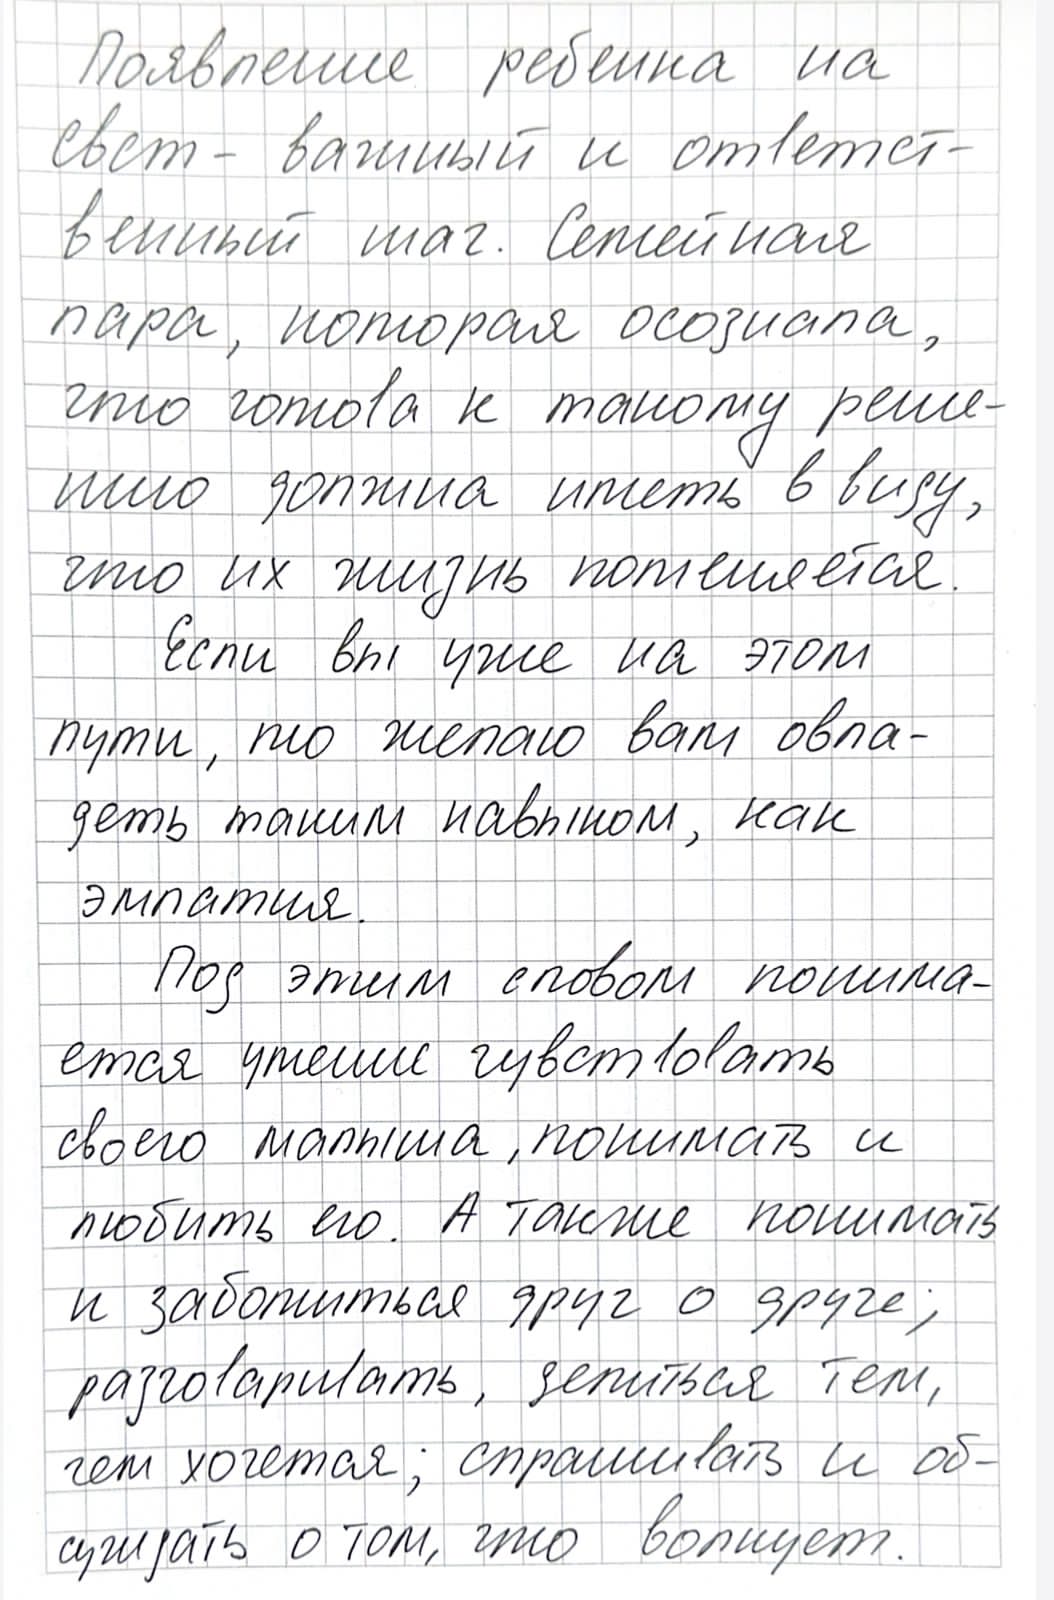 Появление ребенка на
свет - важный и ответст-
венный шаг. Семейная
пара, которая осознала,
что готова к такому реше-
нию должна иметь в виду,
что их жизнь поменяется.
Если вы уже на этом
пути, то желаю вам овла-
деть таким навыком, как
эмпатия.
Под этим словом понима-
ется умение чувствовать
своего малыша, понимать и
любить его. А также понимать
и заботиться друг о друге;
разговаривать, делиться тем,
чем хочется; спрашивать и об-
суждать о том, что волнует.